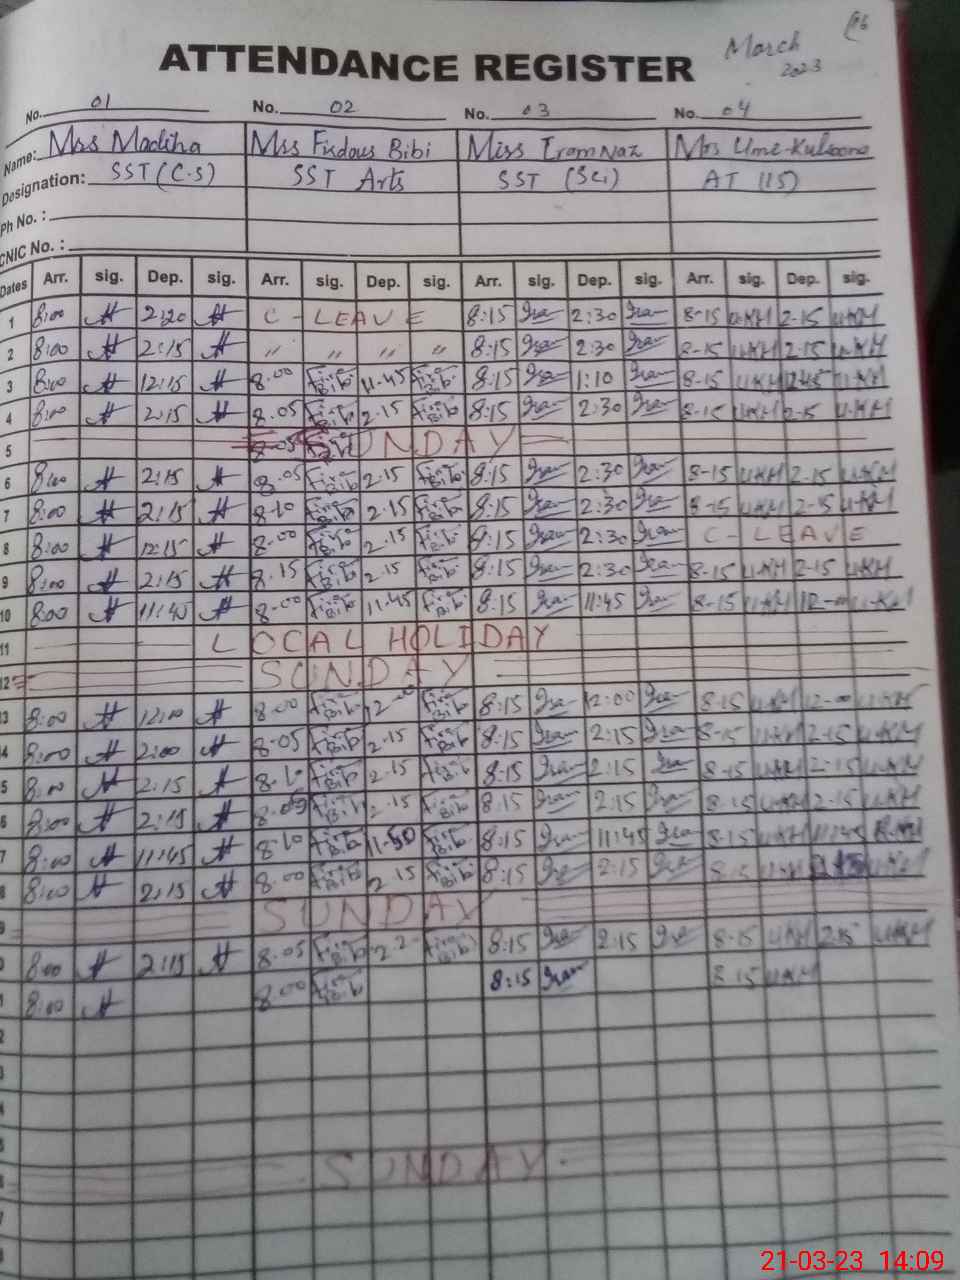 March
2023
ATTENDANCE REGISTER
No. 01 No. 02 No. 03 No. 04
Name: Mrs Madiha Mrs Firdous Bibi Miss Iram Naz Mrs Ume-Kulsoom
Designation: SST (C.S) SST Arts SST (Sci) AT (15)
Ph No. :
CNIC No. :
Dates Arr. sig. Dep. sig. Arr. sig. Dep. sig. Arr. sig. Dep. sig. Arr. sig. Dep. sig.
1 8:00 2:20 C - LEAVE 8:15 Iram 2:30 Iram 8-15 UKM 2-15 UKM
2 8:00 2:15 " " " " 8:15 Iram 2:30 Iram 8-15 UKM 2-15 UKM
3 8:00 12:15 8.00 Bibi 11-45 Bibi 8:15 Iram 1:10 Iram 8-15 UKM UKM
4 8:00 2:15 8.05 Bibi 2.15 Bibi 8:15 Iram 2:30 Iram 8-15 UKM 2-15 UKM
5 8.05 SUNDAY
6 8:00 2:15 8.05 Bibi 2.15 Bibi 8:15 Iram 2:30 Iram 8-15 UKM 2-15 UKM
7 8:00 2:15 8-10 Bibi 2.15 Bibi 8:15 Iram 2:30 Iram 8-15 UKM 2-15 UKM
8 8:00 12:15 8.00 Bibi 2.15 Bibi 8:15 Iram 2:30 Iram C - LEAVE
9 8:00 2:15 8.15 Bibi 2.15 Bibi 8:15 Iram 2:30 Iram 8-15 UKM 2-15 UKM
10 8:00 11:45 8-00 Bibi 11.45 Bibi 8:15 Iram 11:45 Iram 8-15 UKM 12-00 UKM
11 LOCAL HOLIDAY
12 SUNDAY
3 8:00 12:00 8.00 Bibi 12-00 Bibi 8:15 Iram 12:00 Iram 8-15 UKM 12-00 UKM
4 8:00 2:00 8-05 Bibi 2.15 Bibi 8:15 Iram 2:15 Iram 8-15 UKM 2-15 UKM
5 8:00 2:15 8-10 Bibi 2.15 Bibi 8:15 Iram 2:15 Iram 8-15 UKM 2-15 UKM
6 8:00 2:15 Bibi 2.15 Bibi 8:15 Iram 2:15 Iram 8-15 UKM 2-15 UKM
7 8:00 11:45 8-10 Bibi 11-50 Bibi 8:15 Iram 11:45 Iram 8-15 UKM 11:45 UKM
8 8:00 2:15 8.00 Bibi 2.15 Bibi 8:15 Iram 2:15 Iram 8-15 UKM UKM
9 SUNDAY
8:00 2:15 8.05 Bibi Bibi 8:15 Iram 2:15 Iram 8-15 UKM 2-15 UKM
1 8:00 8.00 Bibi 8:15 Iram 8-15 UKM
2
3
4
5
SUNDAY
7
8
21-03-23 14:09